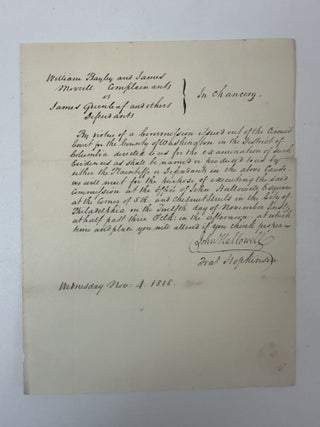 William Bayly and James
Morrell Complainants
vs
James Greenleaf and others
Defendants
In Chancery.
By virtue of a Commission issued out of the Circuit
Court for the County of Washington in the District of
Columbia directed to us for the examination of such
Evidences as shall be named or produced to us by
either the Plaintiffs or Defendants in the above Cause
we will meet for the purpose of executing the said
Commission at the Office of John Hallowell Esquire
at the Corner of 5th. and Chesnut Streets in the City of
Philadelphia on the Twelfth day of November Instt.
at half past three OClk. in the afternoon, at which
time and place you will attend if you think proper
John Hallowell
Fras. Hopkinson
Wednesday Nov: 4. 1818.